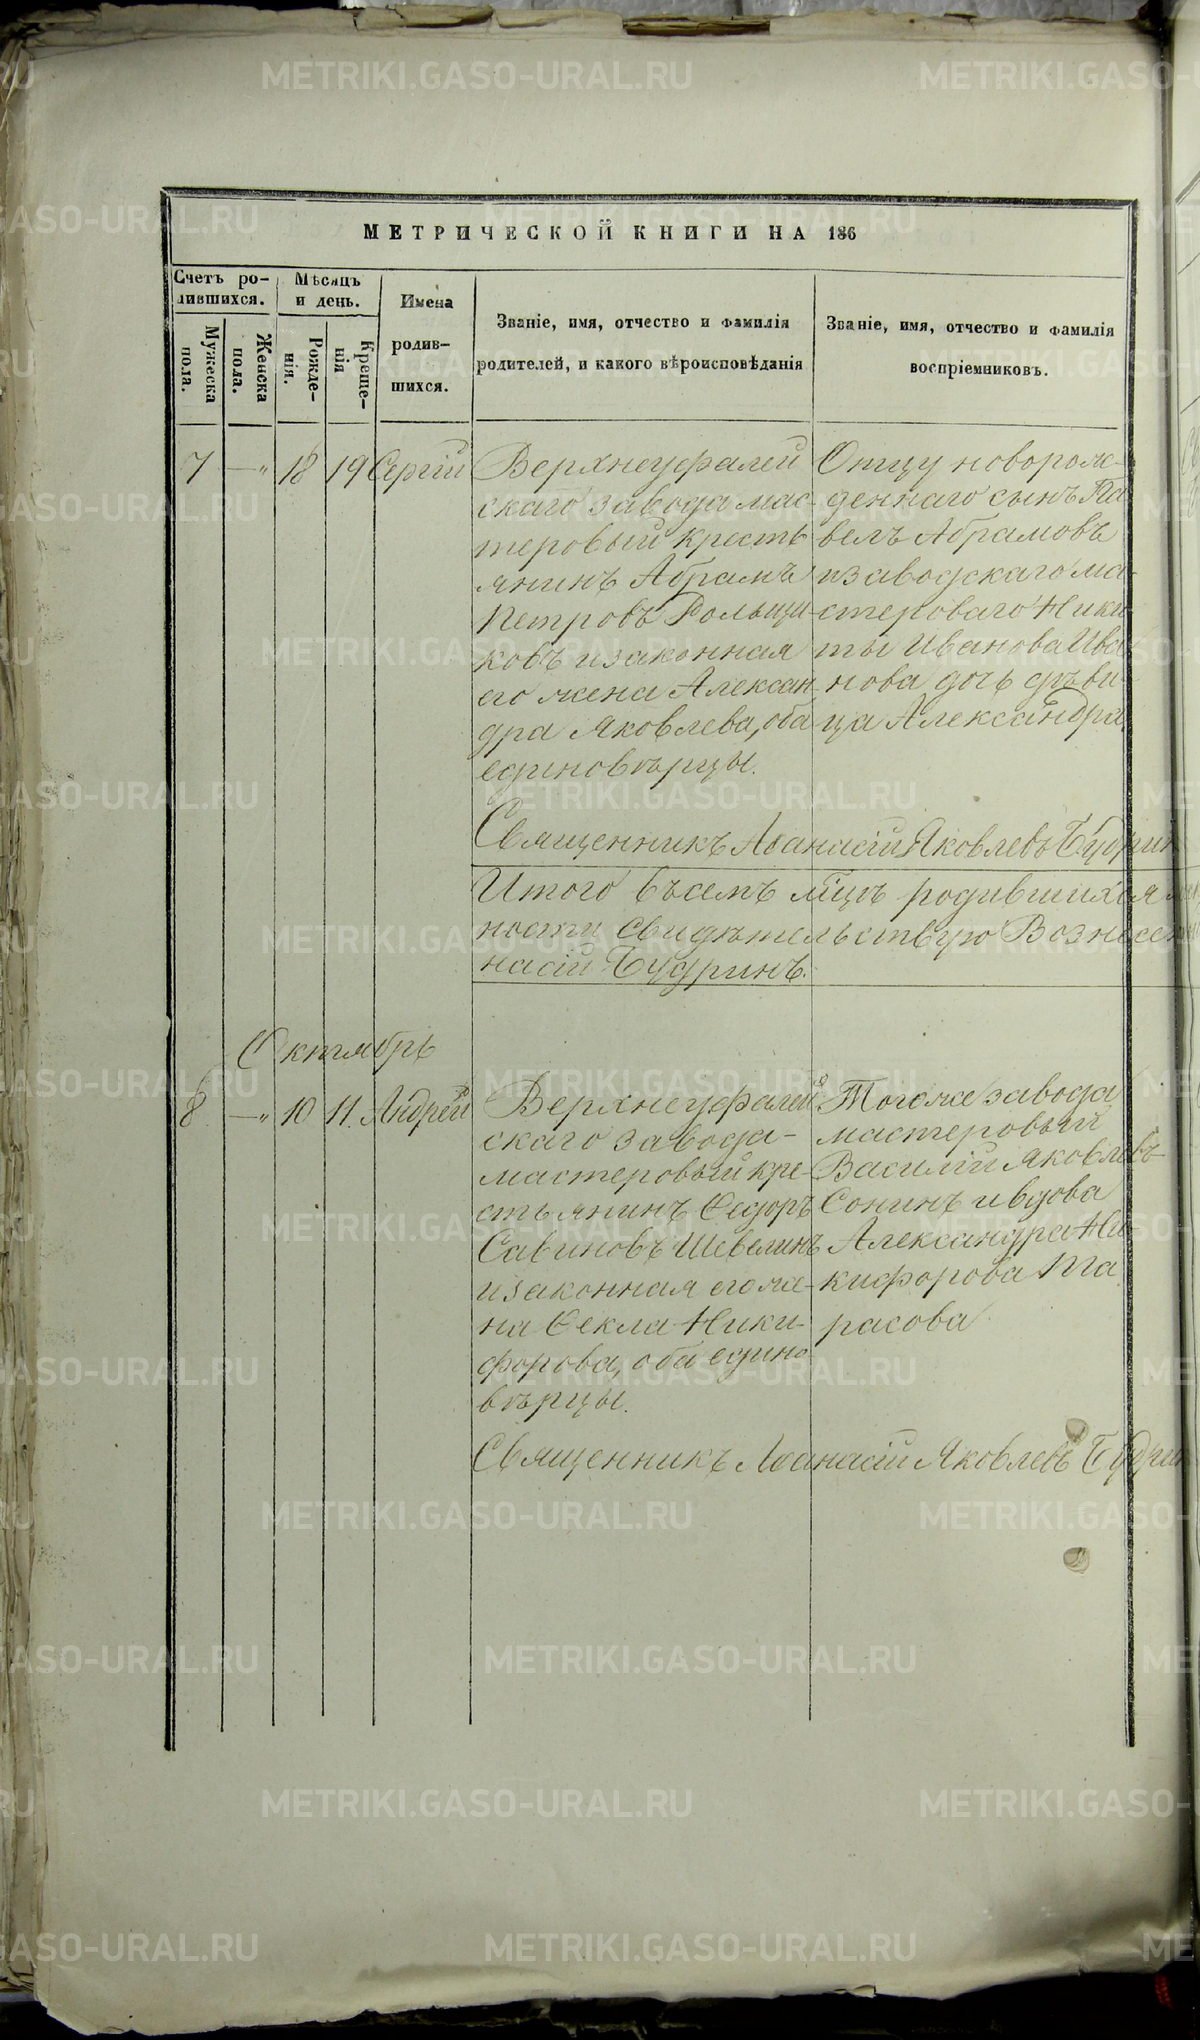 МЕТРИЧЕСКОЙ КНИГИ НА 186
Счетъ ро-
дившихся.
Мѣсяцъ
и день.
Имена
родив-
шихся.
Мужеска
пола.
Женска
пола.
Рожде-
нія.
Креще-
нія
Званіе, имя, отчество и фамилія
родителей, и какого вѣроисповѣданія
Званіе, имя, отчество и фамилія
воспріемниковъ.
7 —„ 18 19 Сергій
Верхнеуфалей
скаго завода мас-
теровый кресть
янинъ Абрамъ
Петровъ Рольщи-
ковъ и законная
его жена Алексан
дра Яковлева, оба
единовѣрцы.
Отцу новорож-
деннаго сынъ Па
велъ Абрамовъ
и заводскаго ма-
стероваго Ники
ты Иванова Ива
нова дочь дѣви-
ца Александра
Священникъ Аѳанасій Яковлевъ Будрин
Итого въсемъ мѣцѣ родившихся
ности свидѣтельствую Вознесен
насій Будринъ.
Октябрь
8 —„ 10 11 Андрей
Верхнеуфалей
скаго завода-
мастеровый кре-
стьянинъ Ѳедоръ
Савиновъ Шевелинъ
и законная его же-
на Ѳекла Ники-
форова, оба едино
вѣрцы.
Тогоже завода
мастеровый
Василій Яковлевъ
Сонинъ и вдова
Александра Ни-
кифорова Та
расова
Священникъ Аѳанасій Яковлевъ Будрин
METRIKI.GASO-URAL.RU